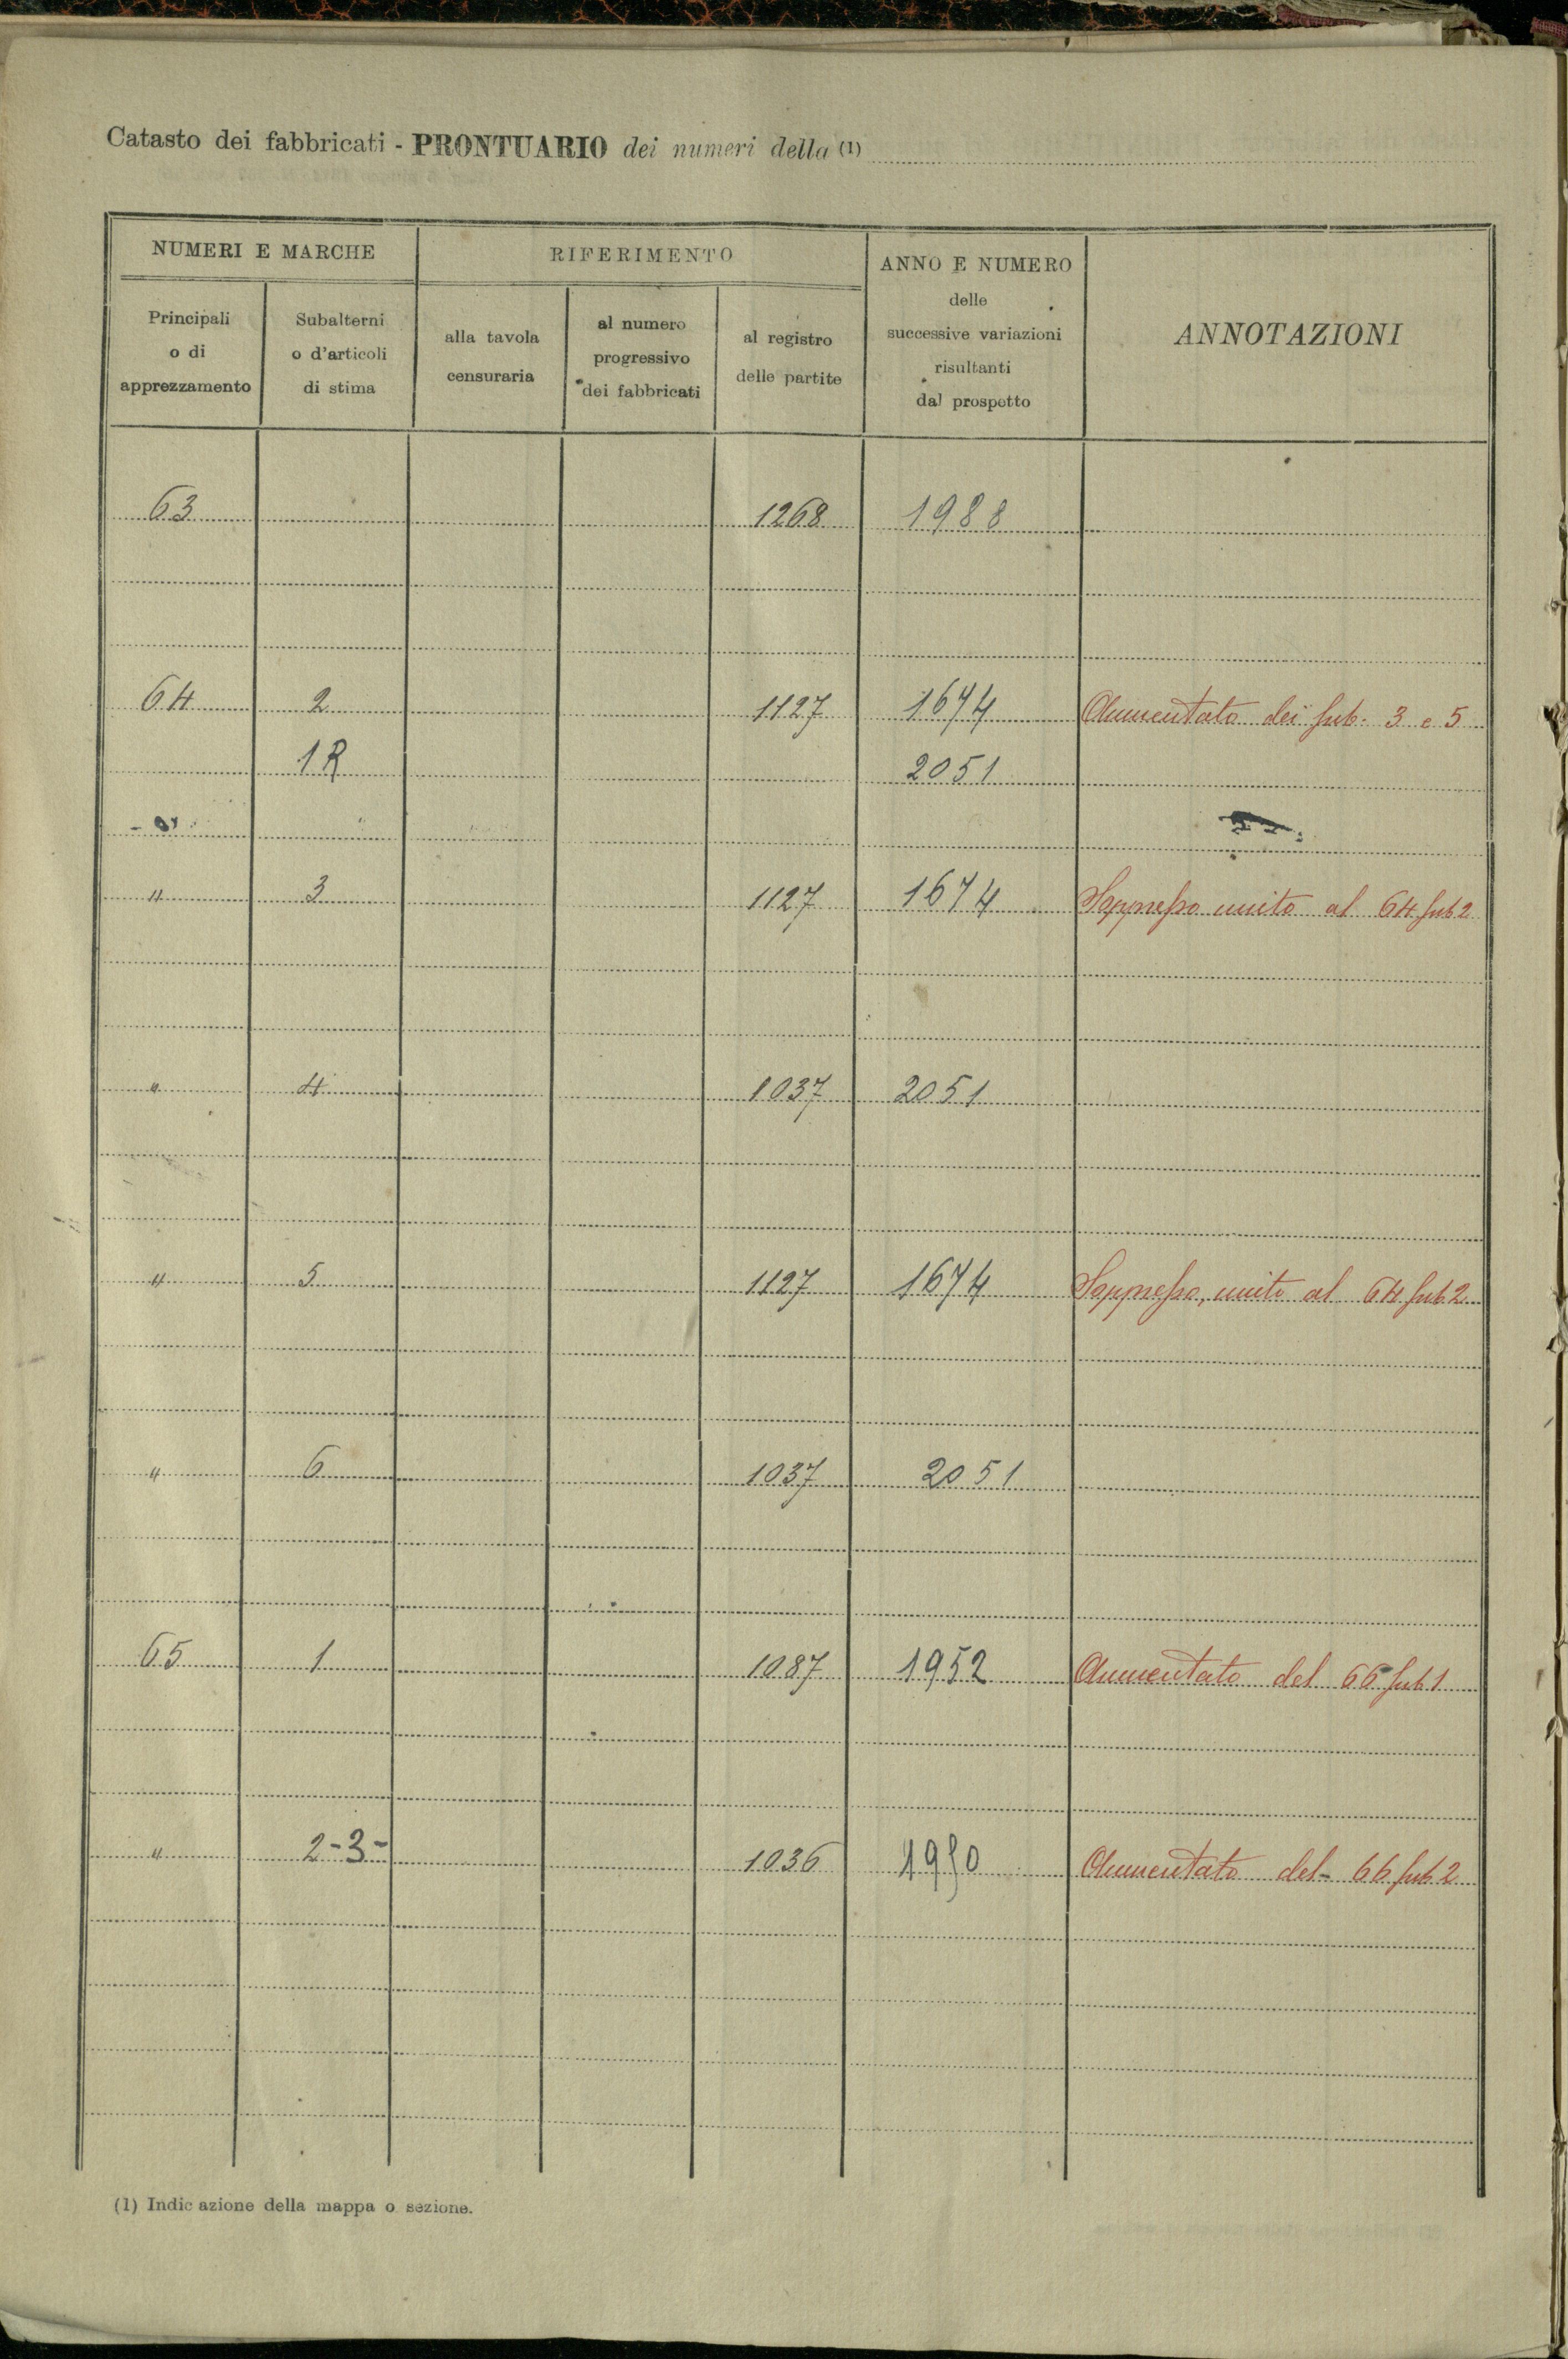 Catasto dei fabbricati - PRONTUARIO dei numeri della (1)
NUMERI E MARCHE
RIFERIMENTO
ANNO E NUMERO
delle
successive variazioni
risultanti
dal prospetto
ANNOTAZIONI
Principali
o di
apprezzamento
Subalterni
o d'articoli
di stima
alla tavola
censuraria
al numero
progressivo
dei fabbricati
al registro
delle partite
63 1268 1988
64 2 1127 1674 Aumentato dei sub. 3 e 5
1R 2051
" 3 1127 1674 Soppresso unito al 64 sub 2
" 4 1037 2051
" 5 1127 1674 Soppresso, unito al 64 sub 2
" 6 1037 2051
65 1 1087 1952 Aumentato del 66 sub 1
" 2-3- 1036 Aumentato del 66 sub 2
(1) Indicazione della mappa o sezione.